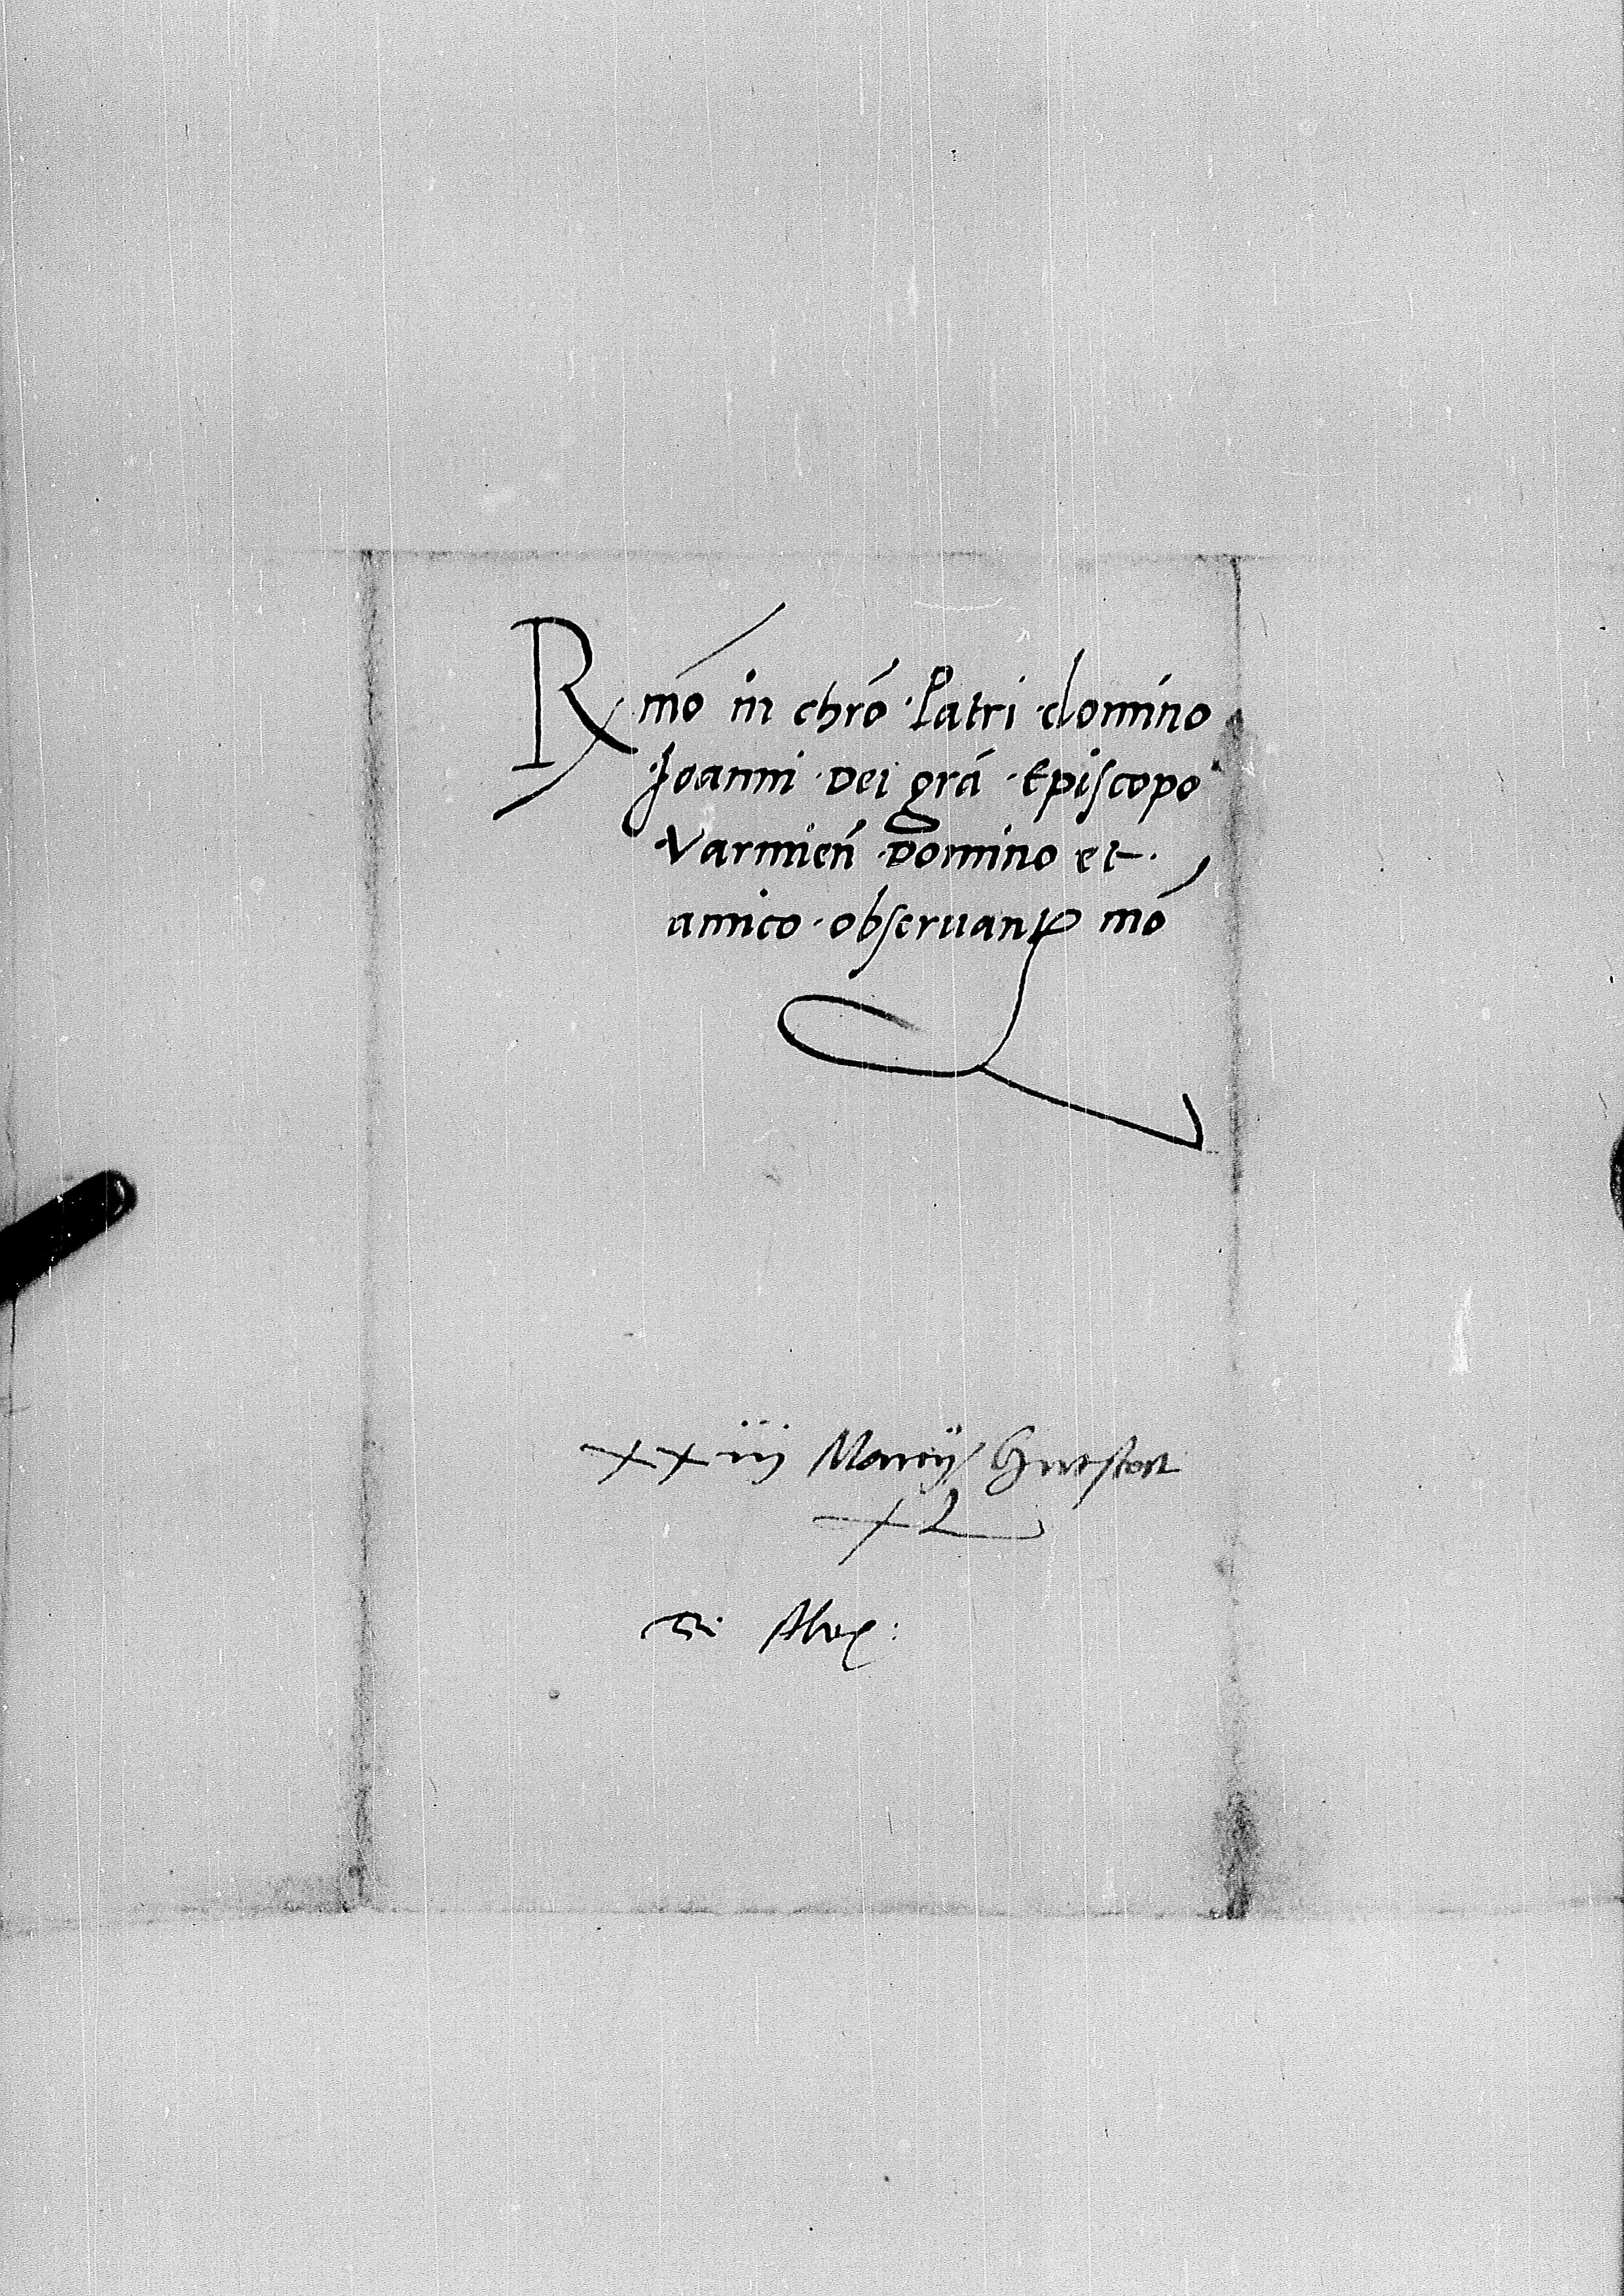 Rmo in chro Patri domino
Joanni Dei gra Episcopo
Varmien Domino et
amico observantmo
xxiij Marcij
xL
Alex: